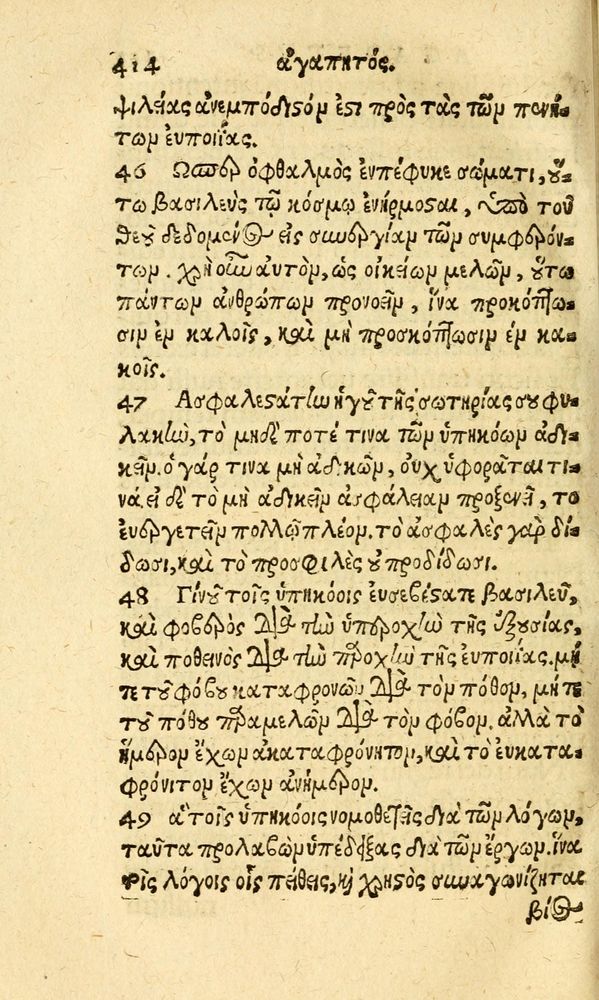 414 ἀγαπητός.
ψιλείας ἀνεμπόδιςόν ἐςι πρὸς τὰς τῶν πενή-
των ἐυποιΐας.
46 Ωσπερ ὀφθαλμὸς ἐνπέφυκε σώματι, ού-
τω βασιλεὺς τῷ κόσμῳ ἐνήρμοςαι, ὑπὸ τοῦ
θεοῦ δεδομένος εἰς συνεργίαν τῶν συμφερόν-
των. χρὴ οὖν αὐτὸν, ὡς οἰκείων μελῶν, ούτω
πάντων ἀνθρώπων προνοεῖν, ἵνα προκόπτω-
σιν ἐν καλοῖς, καὶ μὴ προσκόπτωσιν ἐν κα-
κοῖς.
47 Ασφαλεςάτην ἡγοῦ τῆς σωτηρίας σου φυ-
λακὴν, τὸ μηδέποτέ τινα τῶν ὑπηκόων ἀδι-
κεῖν. ὁ γάρ τινα μὴ ἀδικῶν, οὐχ ὑφορᾶται τι-
νά. εἰ δὲ τὸ μὴ ἀδικεῖν ἀσφάλειαν προξενεῖ, τὸ
ἐυεργετεῖν πολλῷ πλέον. τὸ ἀσφαλὲς γὰρ δί-
δωσι, καὶ τὸ προσφιλὲς οὐ προδίδωσι.
48 Γίνου τοῖς ὑπηκόοις ἐυσεβέςατε βασιλεῦ,
καὶ φοβερὸς διὰ τὴν ὑπεροχὴν τῆς ἐξουσίας,
καὶ ποθεινὸς διὰ τὴν παροχὴν τῆς ἐυποιΐας. μή
τε τοῦ φόβου καταφρονῶν διὰ τὸν πόθον, μήτε
τοῦ πόθου παραμελῶν διὰ τὸν φόβον. ἀλλὰ τὸ
ἥμερον ἔχων ἀκαταφρόνητον, καὶ τὸ ἐυκατα-
φρόνιτον ἔχων ἀνήμερον.
49 ἃ τοῖς ὑπηκόοις νομοθετεῖς διὰ τῶν λόγων,
ταῦτα προλαβὼν ὑπέδειξας διὰ τῶν ἔργων. ἵνα
τοῖς λόγοις οἷς πείθεις, καὶ χρηςὸς συναγωνίζηται
βίος